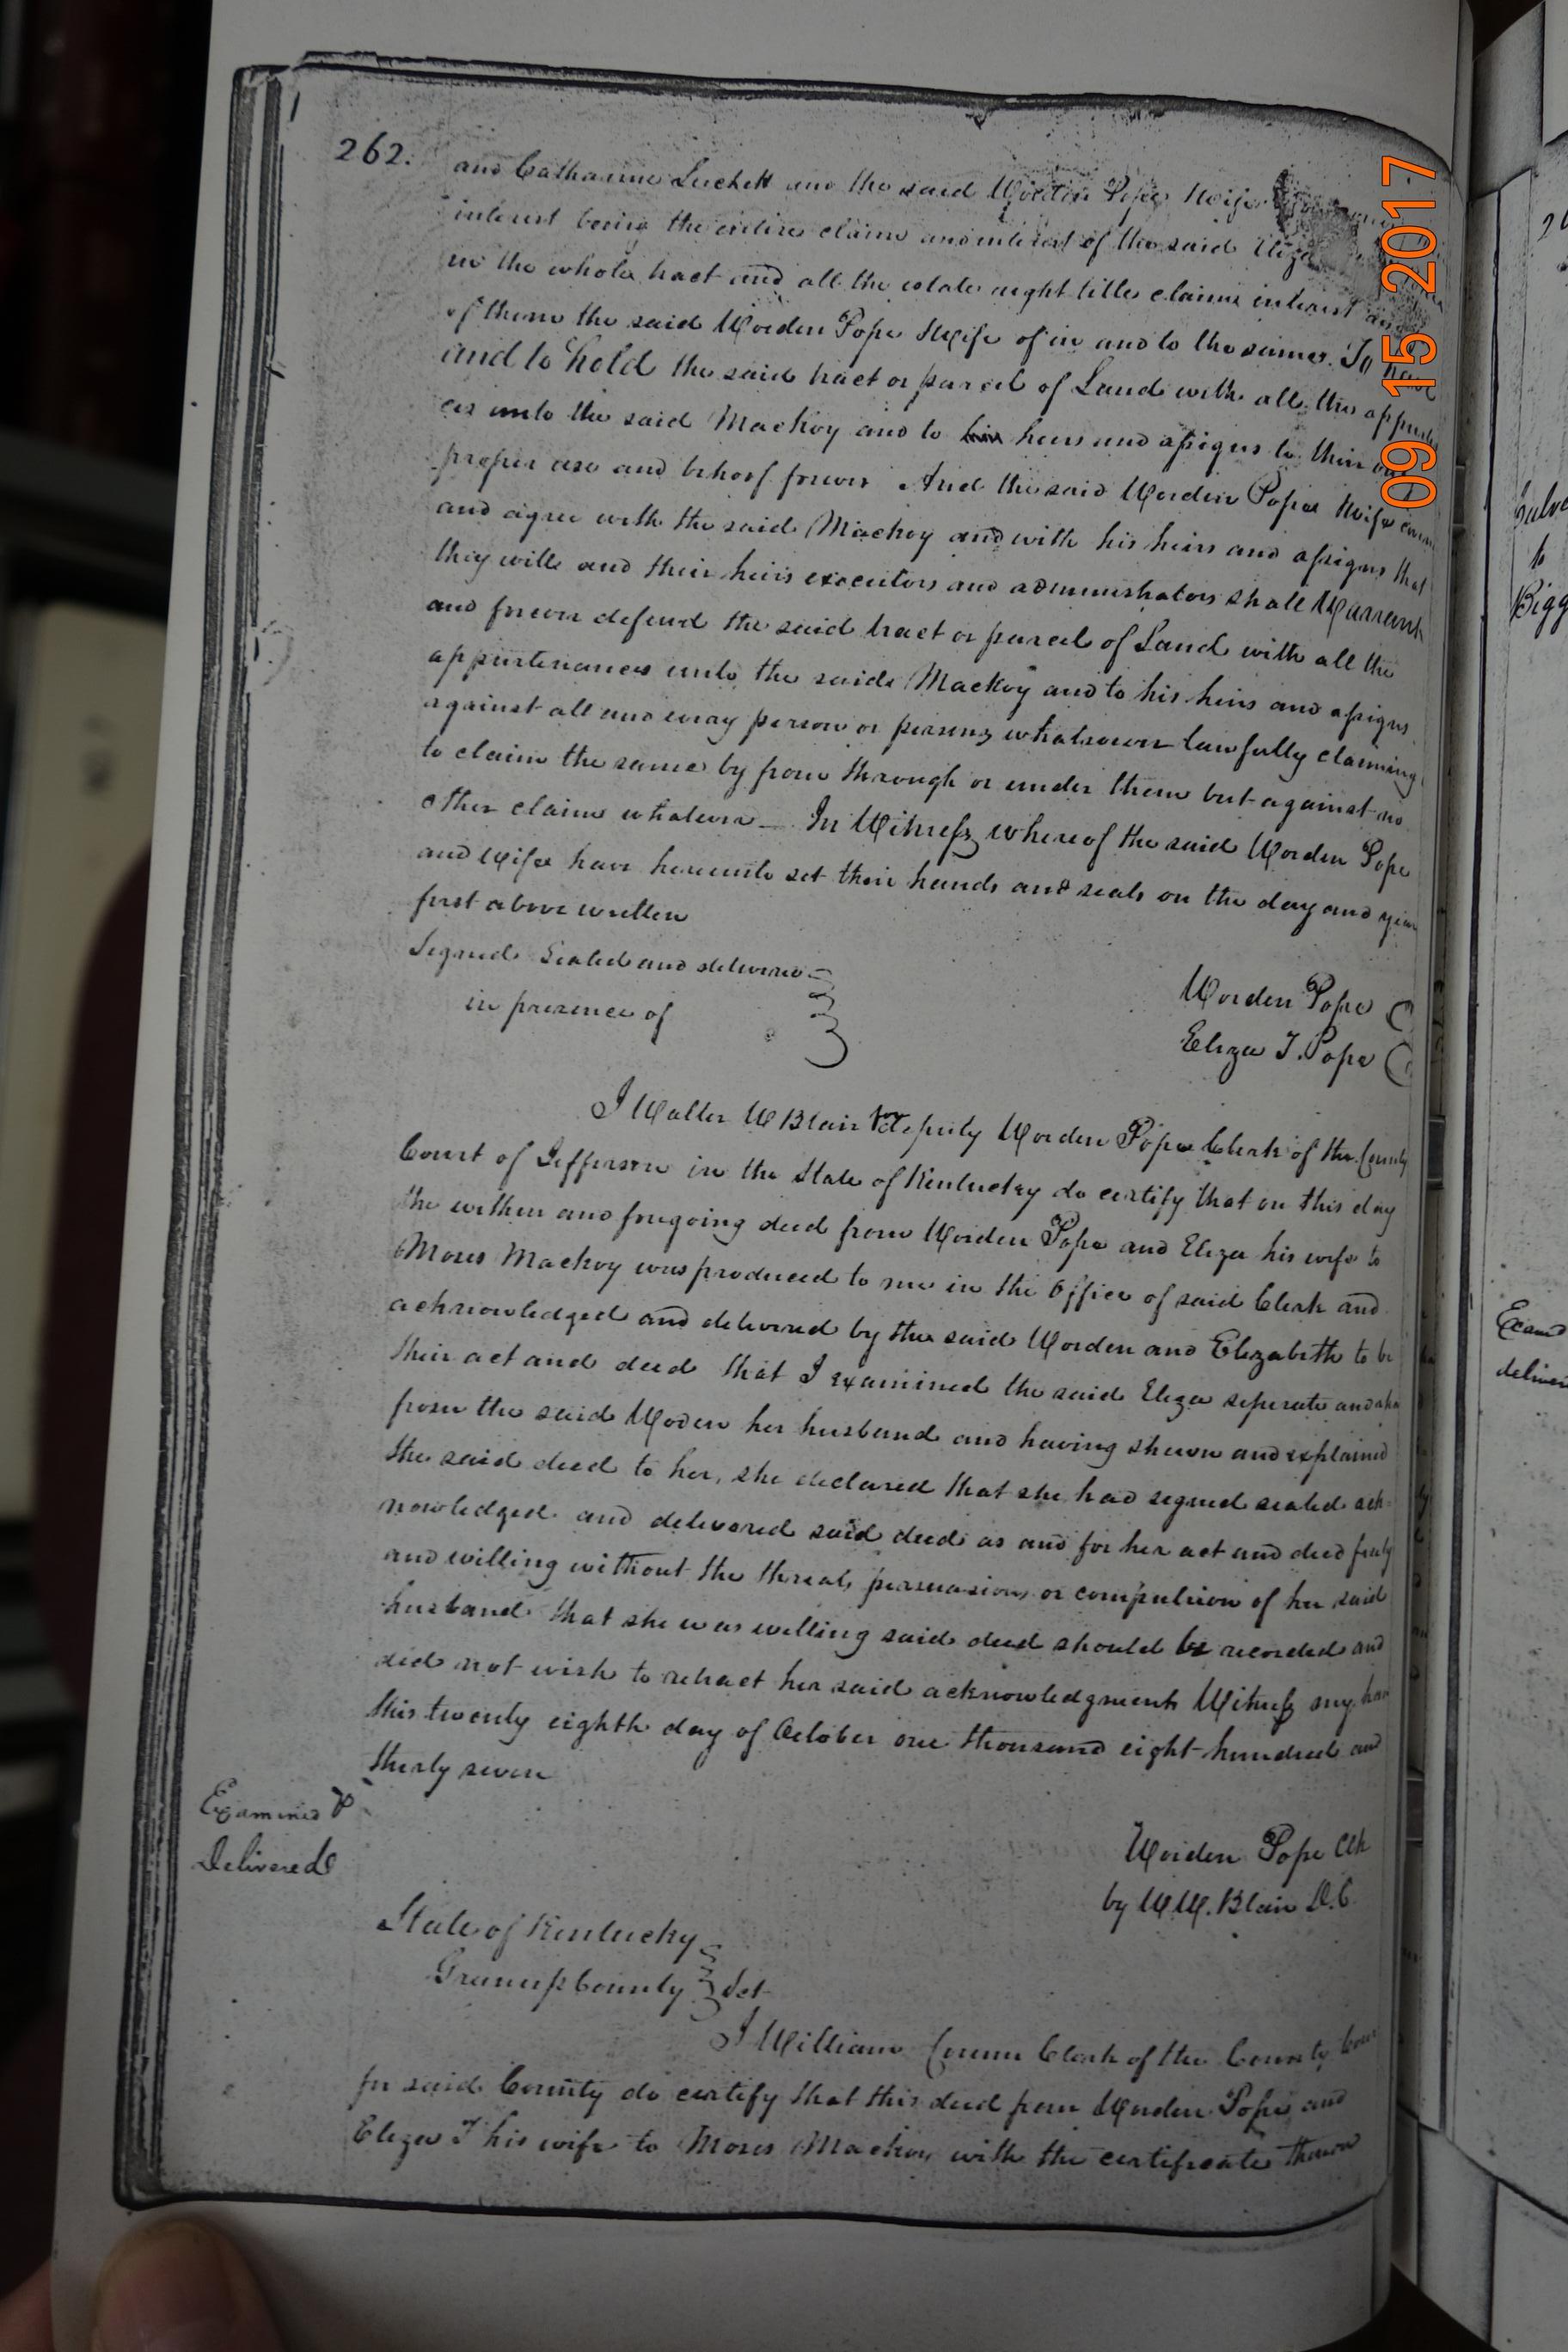 262.
and Catharine Luckett and the said Worden Pope & wife
interest being the entire claim and interest of the said Eliza
in the whole tract and all the estate right title claim interest and
of them the said Worden Pope & wife of in and to the same. To have
and to hold the said tract or parcel of Land with all the appurte
ces unto the said Mackoy and to his heirs and assigns to their own
proper use and behoof forever And the said Worden Pope & wife
and agree with the said Mackoy and with his heirs and assigns that
they will and their heirs executors and administrators shall Warrant
and forever defend the said tract or parcel of Land with all the
appurtenances unto the said Mackoy and to his heirs and assigns
against all and every person or persons whatsoever lawfully claiming
to claim the same by from through or under them but against no
other claim whatever — In Witness whereof the said Worden Pope
and wife have hereunto set their hands and seals on the day and year
first above written
Signed Sealed and delivered
in presence of
Worden Pope
Eliza T. Pope
I Walter W Blair Deputy Worden Pope Clerk of the County
Court of Jefferson in the State of Kentucky do certify that on this day
the within and foregoing deed from Worden Pope and Eliza his wife to
Moses Mackoy was produced to me in the office of said Clerk and
acknowledged and delivered by the said Worden and Elizabeth to be
their act and deed that I examined the said Eliza seperate and apa
from the said Woden her husband and having shewn and explained
the said deed to her, she declared that she had signed sealed ack-
nowledged and delivered said deed as and for her act and deed freely
and willing without the threats persuasion or compulsion of her said
husband that she was willing said deed should be recorded and
did not wish to retract her said acknowledgment Witness my han
this twenty eighth day of October one thousand eight hundred and
thirty seven
Examined &
Delivered
Worden Pope Clk
by W W. Blair D.C.
State of Kentucky
Greenup County Sct
I William Corum Clerk of the County Cour
for said County do certify that this deed from Worden Pope and
Eliza T his wife to Moses Mackoy with the certificate thereon
09 15 2017
to
Bigg
Exam
deliver